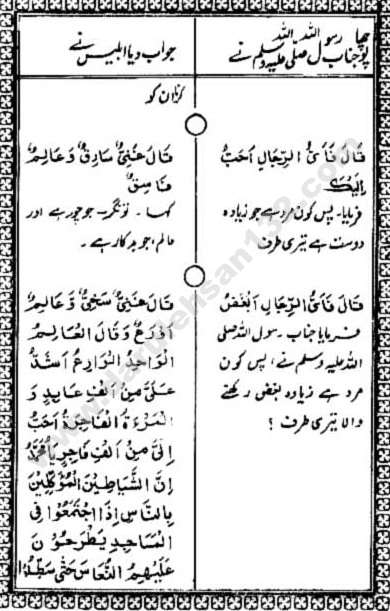 پوچھا جناب رسول اللہ صلی اللہ علیہ وسلم نے
جواب دیا ابلیس نے
قَالَ فَاَیُّ الرِّجَالِ اَحَبُّ
اِلَیْکَ
فرمایا۔ پس کون مرد ہے جو زیادہ
دوست ہے تیری طرف
کہ ان کو
قَالَ غَنِیٌّ سَارِقٌ وَّ عَالِمٌ
فَاسِقٌ
کہا۔ تونگر۔ جو چور ہے اور
عالم، جو بدکار ہے۔
قَالَ فَاَیُّ الرِّجَالِ اَبْغَضُ
فرمایا جناب رسول اللہ صلی
اللہ علیہ وسلم نے، پس کون
مرد ہے زیادہ بغض رکھنے
والا تیری طرف ؟
قَالَ غَنِیٌّ سَخِیٌّ وَّ عَالِمٌ
اَوْرَعُ وَقَالَ الْعَالِمُ
الْوَاحِدُ الْوَارِعُ اَشَدُّ
عَلَیَّ مِنْ اَلْفِ عَابِدٍ وَ
الْمَرْءَةُ الْفَاجِرَةُ اَحَبُّ
اِلَیَّ مِنْ اَلْفِ فَاجِرٍ یَا مُحَمَّدُ
اِنَّ الشَّیَاطِیْنَ الْمُؤَکَّلِیْنَ
بِالنَّاسِ اِذَا اجْتَمَعُوْا فِی
الْمَسَاجِدِ یَطْرَحُوْنَ
عَلَیْهِمُ النُّعَاسَ حَتّٰی